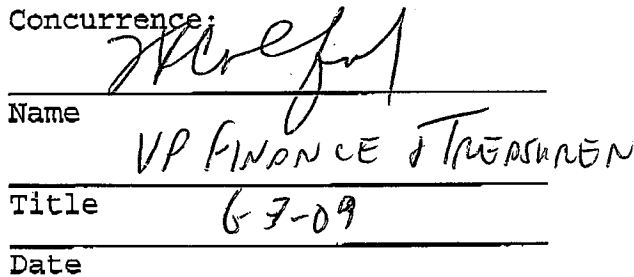 Concurrence:
Name
VP FINANCE & TREASURER
Title
6-3-09
Date